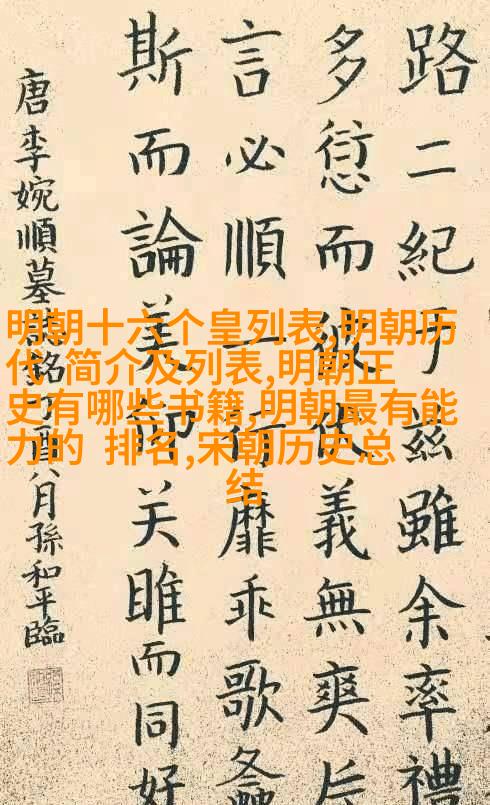 路二紀于兹雖余率禮
多愆而彼義無爽
言必順一行靡乖歌螽
斯而論美師关雎而同好
唐李婉順墓誌銘丁酉八月孫和平臨
明朝十六个皇列表,明朝历
代 简介及列表,明朝正
史有哪些书籍,明朝最有能
力的 排名,宋朝历史总
结